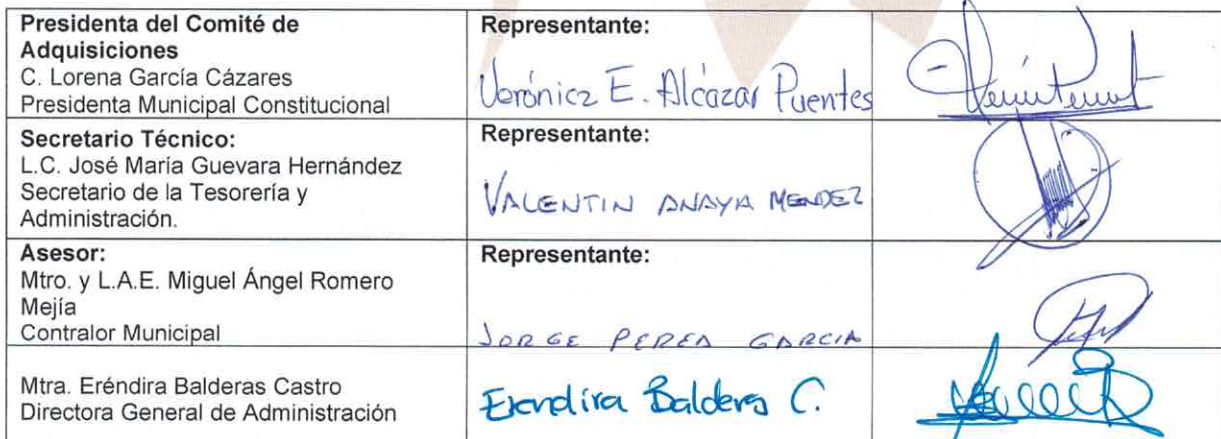 Presidenta del Comité de
Adquisiciones
C. Lorena García Cázares
Presidenta Municipal Constitucional
Representante:
Verónica E. Alcázar Puentes
Secretario Técnico:
L.C. José María Guevara Hernández
Secretario de la Tesorería y
Administración.
Representante:
VALENTIN ANAYA MENDEZ
Asesor:
Mtro. y L.A.E. Miguel Ángel Romero
Mejía
Contralor Municipal
Representante:
JORGE PEREA GARCIA
Mtra. Eréndira Balderas Castro
Directora General de Administración
Erendira Balderas C.